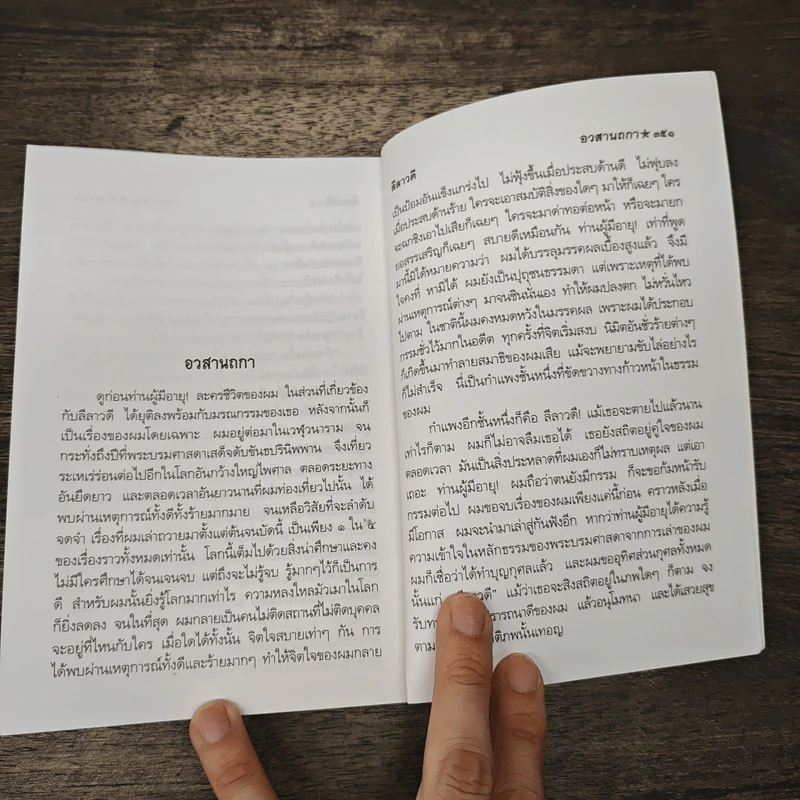 อวสานถกา
ดูก่อนท่านผู้มีอายุ! ละครชีวิตของผม ในส่วนที่เกี่ยวข้อง
กับลีลาวดี ได้ยุติลงพร้อมกับมรณกรรมของเธอ หลังจากนั้นก็
เป็นเรื่องของผมโดยเฉพาะ ผมอยู่ต่อมาในเวฬุวนาราม จน
กระทั่งถึงปีที่พระบรมศาสดาเสด็จดับขันธปรินิพพาน จึงเที่ยว
ระเหเร่ร่อนต่อไปอีกในโลกอันกว้างใหญ่ไพศาล ตลอดระยะทาง
อันยืดยาว และตลอดเวลาอันยาวนานที่ผมท่องเที่ยวไปนั้น ได้
พบผ่านเหตุการณ์ทั้งดีทั้งร้ายมากมาย จนเหลือวิสัยที่จะลำดับ
จดจำ เรื่องที่ผมเล่าถวายมาตั้งแต่ต้นจนบัดนี้ เป็นเพียง ๑ ใน ๕
ของเรื่องราวทั้งหมดเท่านั้น โลกนี้เต็มไปด้วยสิ่งน่าศึกษาและคง
ไม่มีใครศึกษาได้จนเจนจบ แต่ถึงจะไม่รู้จบ รู้มากๆไว้ก็เป็นการ
ดี สำหรับผมนั้นยิ่งรู้โลกมากเท่าไร ความหลงใหลมัวเมาในโลก
ก็ยิ่งลดลง จนในที่สุด ผมกลายเป็นคนไม่ติดสถานที่ไม่ติดบุคคล
จะอยู่ที่ไหนกับใคร เมื่อใดได้ทั้งนั้น จิตใจสบายเท่าๆ กัน การ
ได้พบผ่านเหตุการณ์ทั้งดีและร้ายมากๆ ทำให้จิตใจของผมกลาย
อวสานถกา ★ ๓๕๑
ลีลาวดี
เป็นป้อมอันแข็งแกร่งไป ไม่ฟุ้งขึ้นเมื่อประสบด้านดี ไม่ฟุบลง
เมื่อประสบด้านร้าย ใครจะเอาสมบัติสิ่งของใดๆ มาให้ก็เฉยๆ ใคร
จะฉกชิงเอาไปเสียก็เฉยๆ ใครจะมาด่าทอต่อหน้า หรือจะมายก
ยอสรรเสริญก็เฉยๆ สบายดีเหมือนกัน ท่านผู้มีอายุ! เท่าที่พูด
มานี้มิได้หมายความว่า ผมได้บรรลุมรรคผลเบื้องสูงแล้ว จึงมี
ใจคงที่ หามิได้ ผมยังเป็นปุถุชนธรรมดา แต่เพราะเหตุที่ได้พบ
ผ่านเหตุการณ์ต่างๆ มาจนชินนั่นเอง ทำให้ผมปลงตก ไม่หวั่นไหว
ไปตาม ในชาตินี้ผมคงหมดหวังในมรรคผล เพราะผมได้ประกอบ
กรรมชั่วไว้มากในอดีต ทุกครั้งที่จิตเริ่มสงบ นิมิตอันชั่วร้ายต่างๆ
ก็เกิดขึ้นมาทำลายสมาธิของผมเสีย แม้จะพยายามขับไล่อย่างไร
ก็ไม่สำเร็จ นี่เป็นกำแพงชั้นหนึ่งที่ขัดขวางทางก้าวหน้าในธรรม
ของผม
กำแพงอีกชั้นหนึ่งก็คือ ลีลาวดี! แม้เธอจะตายไปแล้วนาน
เท่าไรก็ตาม ผมก็ไม่อาจลืมเธอได้ เธอยังสถิตอยู่คู่ใจของผม
ตลอดเวลา มันเป็นสิ่งประหลาดที่ผมเองก็ไม่ทราบเหตุผล แต่เอา
เถอะ ท่านผู้มีอายุ! ผมถือว่าตนยังมีกรรม ก็จะขอก้มหน้ารับ
กรรมต่อไป ผมขอจบเรื่องของผมเพียงแค่นี้ก่อน คราวหลังเมื่อ
มีโอกาส ผมจะนำมาเล่าสู่กันฟังอีก หากว่าท่านผู้มีอายุได้ความรู้
ความเข้าใจในหลักธรรมของพระบรมศาสดาจากการเล่าของผม
ผมก็เชื่อว่าได้ทำบุญกุศลแล้ว และผมขออุทิศส่วนกุศลทั้งหมด
นั้นแก่ แม้ว่าเธอจะสิงสถิตอยู่ในภพใดๆ ก็ตาม จง
รับ ของผม แล้วอนุโมทนา และได้เสวยสุข
ตาม ภพนั้นเทอญ